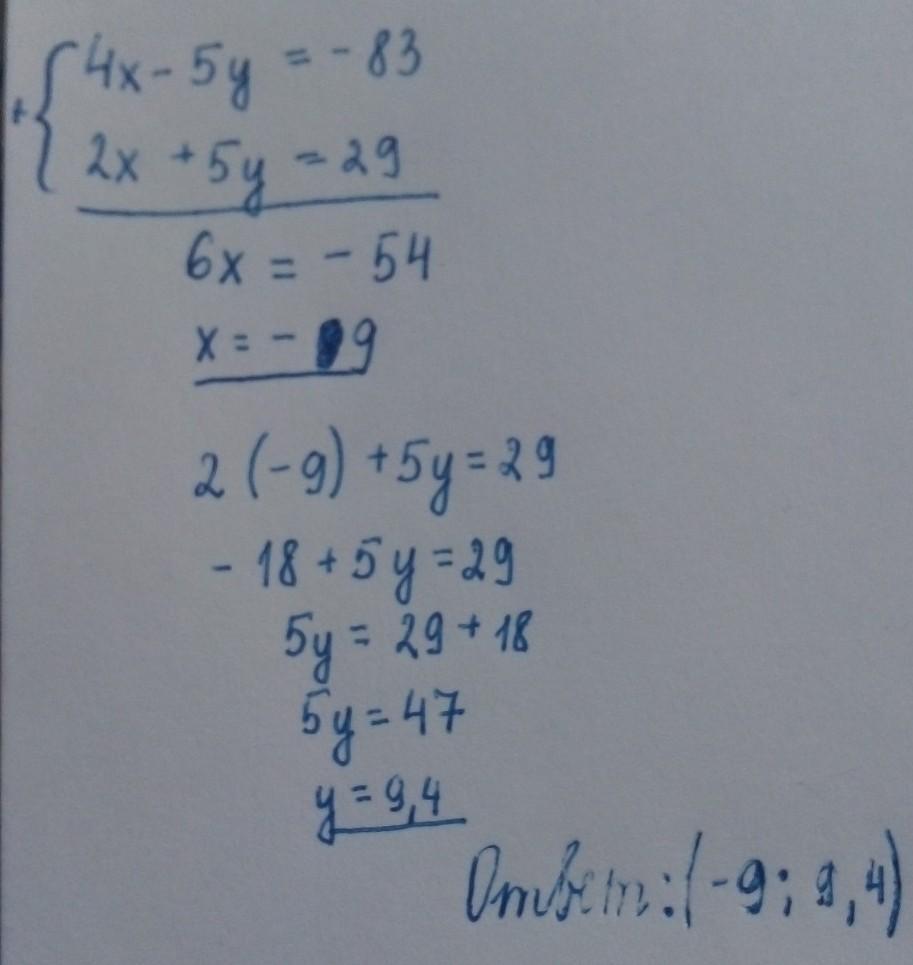 +{ 4x - 5y = - 83
2x + 5y = 29
6x = - 54
x = - 9
2 (-9) + 5y = 29
- 18 + 5y = 29
5y = 29 + 18
5y = 47
y = 9,4
Ответ: (-9; 9,4)